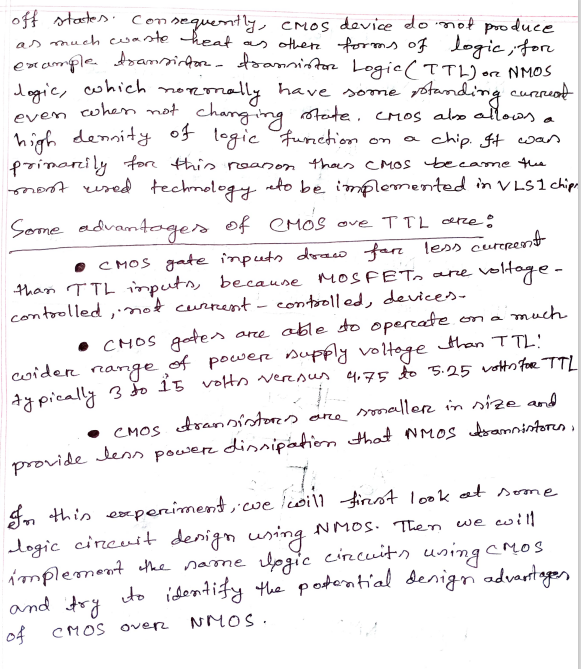 off states. Consequently, CMOS device do not produce
as much waste heat as other forms of logic, for
example transistor - transistor Logic (TTL) or NMOS
logic, which normally have some standing current
even when not changing state. CMOS also allows a
high density of logic function on a chip. It was
primarily for this reason thas CMOS became the
most used technology to be implemented in VLSI chips
Some advantages of CMOS ove TTL are:
• CMOS gate inputs draw far less current
than TTL inputs, because MOSFETs are voltage -
controlled, not current - controlled, devices.
• CMOS gates are able to operate on a much
wider range of power supply voltage than TTL:
typically 3 to 15 volts versus 4.75 to 5.25 volts for TTL
• CMOS transistors are smaller in size and
provide less power dissipation that NMOS transistors,
In this experiment, we will first look at some
logic circuit design using NMOS. Then we will
implement the same logic circuits using CMOS
and try to identify the potential design advantages
of CMOS over NMOS.